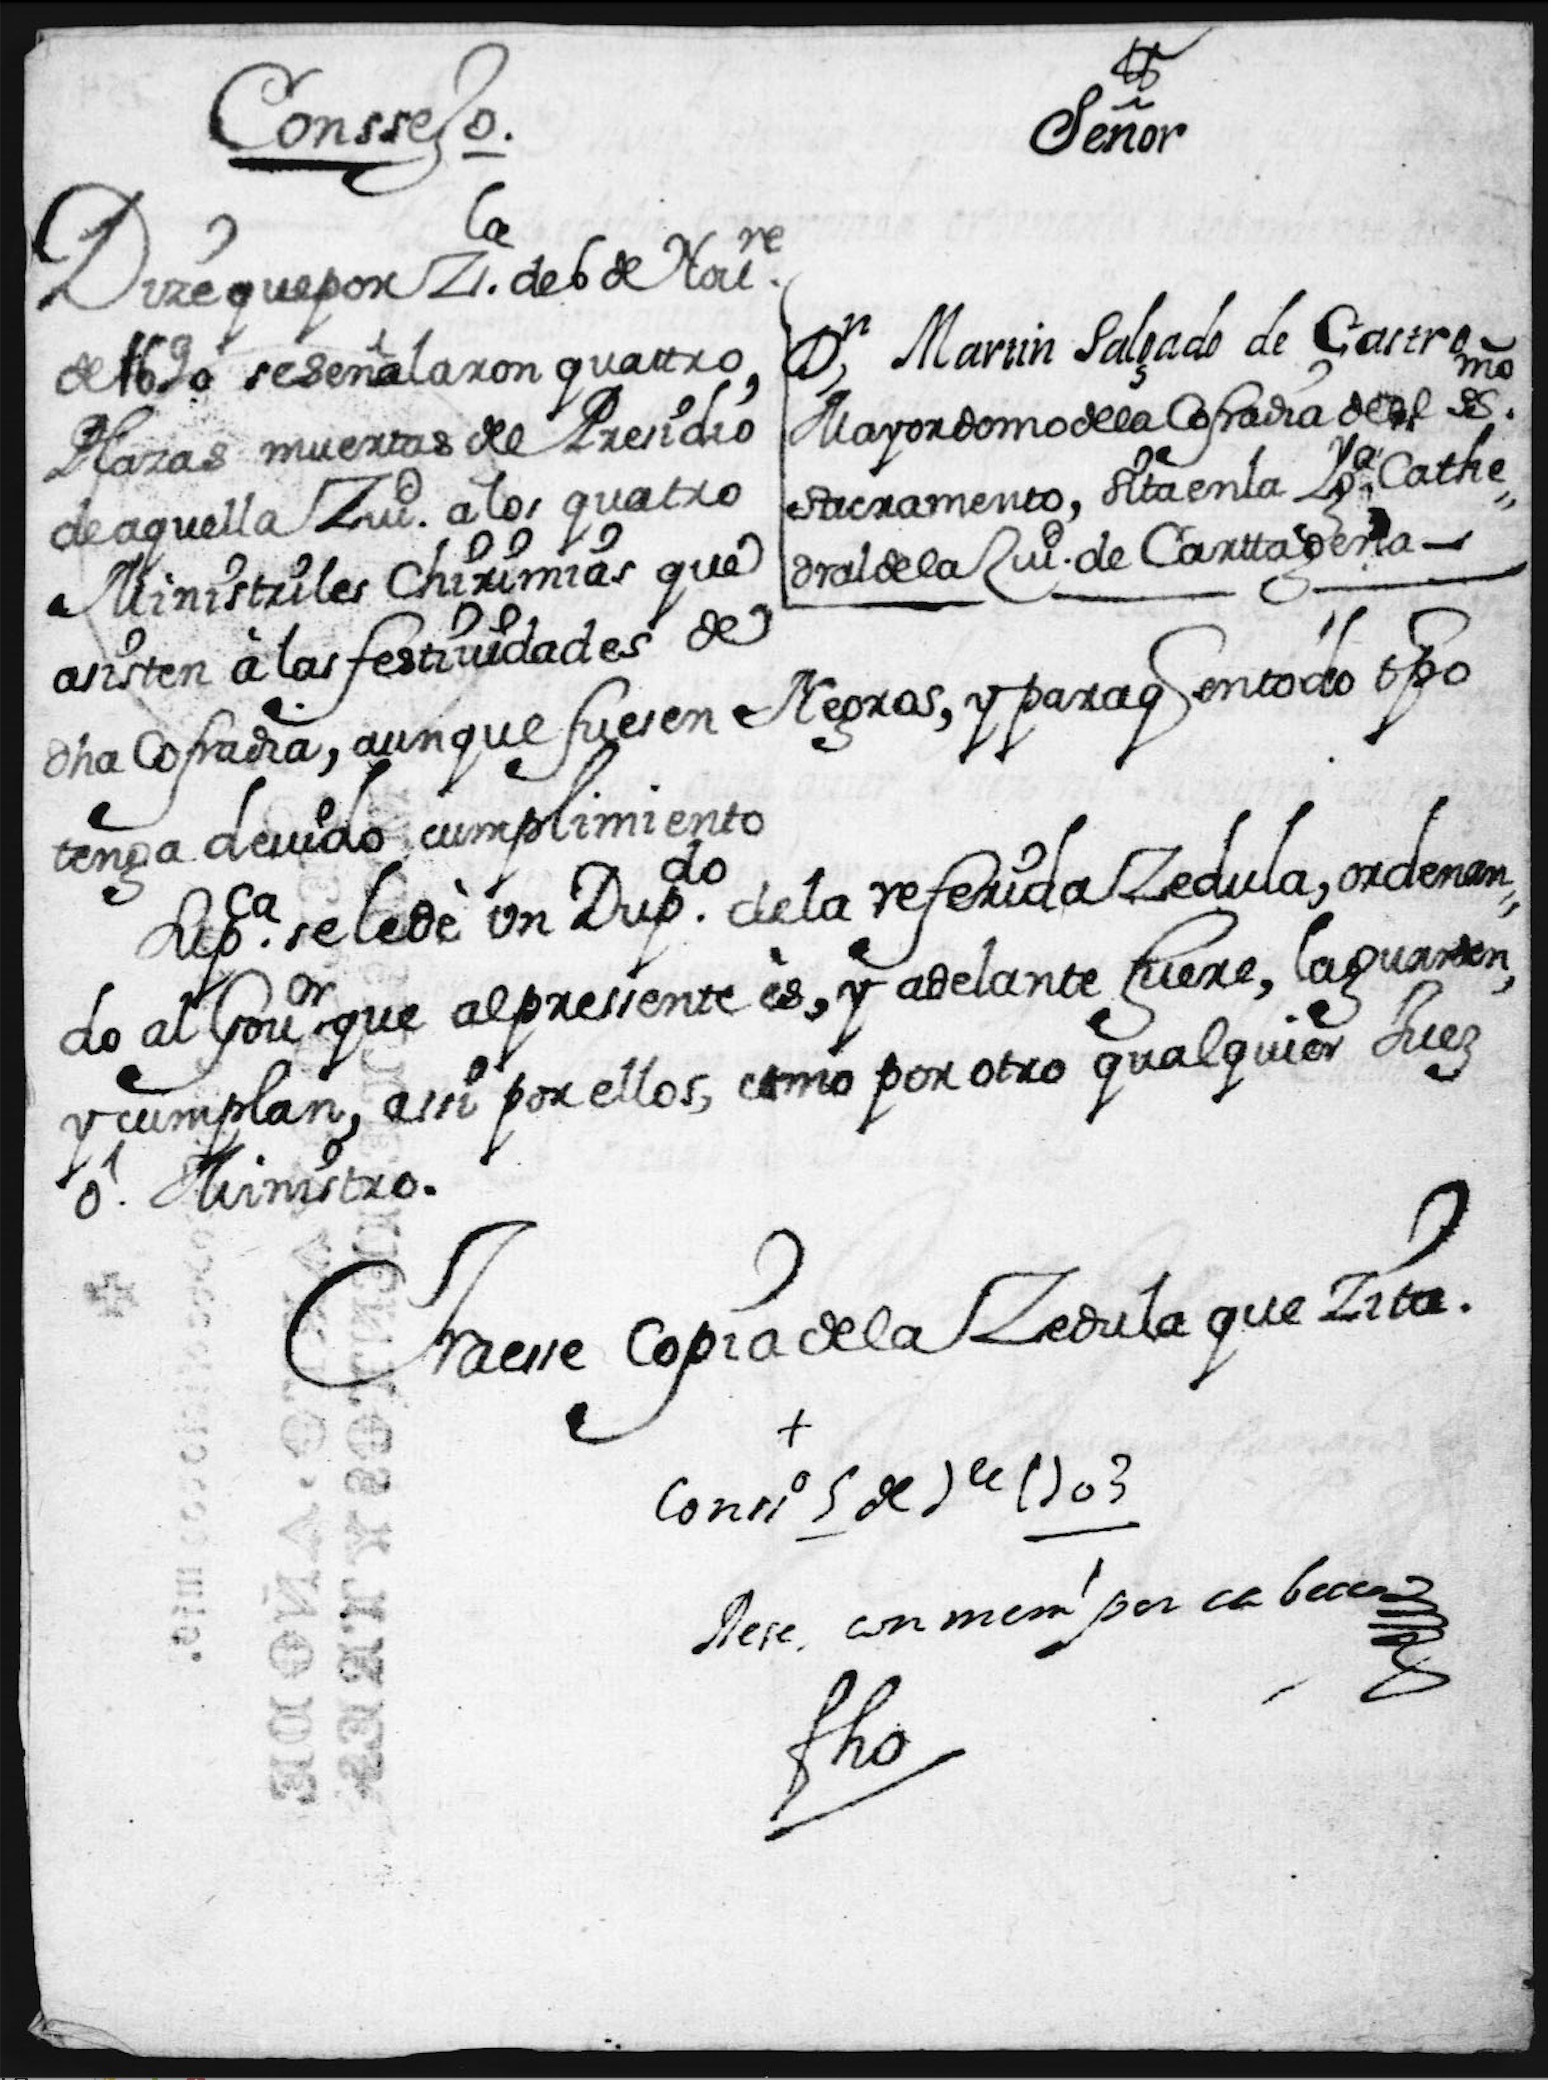 Conssejo.
Señor
Dn. Martin Salgado de Castro
Mayordomo de la Cofradia del SSmo.
Sacramento, sita en la Ygla. Cathe
dral de la Ciud. de Carttagena
Dize que por Zla. de 6 de Noure.
de se señalaron quattro
Plazas muertas del Presidio
de aquella Ziud. a los quatro
Ministriles Chirimias que
asisten à las festiuidades de
dha Cofradia, aunque fuesen Negros, y para q en todo tpo
tenga deuido cumplimiento
Supca. se le dè vn Dupdo. de la referida Zedula, ordenan
do al Gouor. que al pressente ès, y adelante fuere, la guarden,
y cumplan, assi por ellos, como por otro qualquier Juez
ò Ministro.
Traesse Copia de la Zedula que Zita.
+
Conssº 5 de 1703
Dese, con meml por cabeza
fho